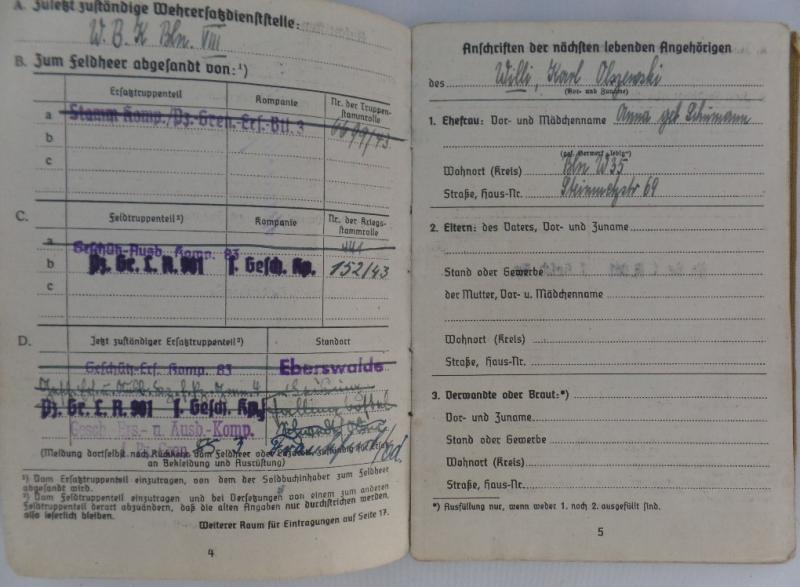 A. Zuletzt zuständige Wehrersatzdienststelle:
W. B. K Bln. VIII
B. Zum Feldheer abgesandt von:¹)
Ersatztruppenteil
Kompanie
Nr. der Truppen-
stammrolle
a Stamm Komp./Pz.-Gren.-Ers.-Btl. 3 6699/43
b
c
C. Feldtruppenteil²)
Kompanie
Nr. der Kriegs-
stammrolle
a Geschütz-Ausb. Komp. 83 441
b Pz. Gr. L. R. 901 I. Gesch. Kp. 152/43
c
D. Jetzt zuständiger Ersatztruppenteil²)
Standort
Geschütz-Ers. Komp. 83 Eberswalde
Pz. Gr. L. R. 901 I. Gesch. Kp.
Gesch. Ers.- u. Ausb.-Komp.
(Meldung dortselbst nach Rückkehr vom Feldheer oder
an Bekleidung und Ausrüstung)
¹) Vom Ersatztruppenteil einzutragen, von dem der Soldbuchinhaber zum Feldheer
abgesandt wird.
²) Vom Feldtruppenteil einzutragen und bei Versetzungen von einem zum anderen
Feldtruppenteil derart abzuändern, daß die alten Angaben nur durchstrichen werden,
also leserlich bleiben.
Weiterer Raum für Eintragungen auf Seite 17.
4
Anschriften der nächsten lebenden Angehörigen
des Willi, Karl Olszewski
(Vor- und Zuname)
1. Ehefrau: Vor- und Mädchenname Anna geb Schumann
(ggf. Vermerk „ledig“)
Wohnort (Kreis) Bln W35
Straße, Haus-Nr. Steinmetzstr 69
2. Eltern: des Vaters, Vor- und Zuname
Stand oder Gewerbe
der Mutter, Vor- u. Mädchenname
Wohnort (Kreis)
Straße, Haus-Nr.
3. Verwandte oder Braut:*)
Vor- und Zuname
Stand oder Gewerbe
Wohnort (Kreis)
Straße, Haus-Nr.
*) Ausfüllung nur, wenn weder 1. noch 2. ausgefüllt sind.
5